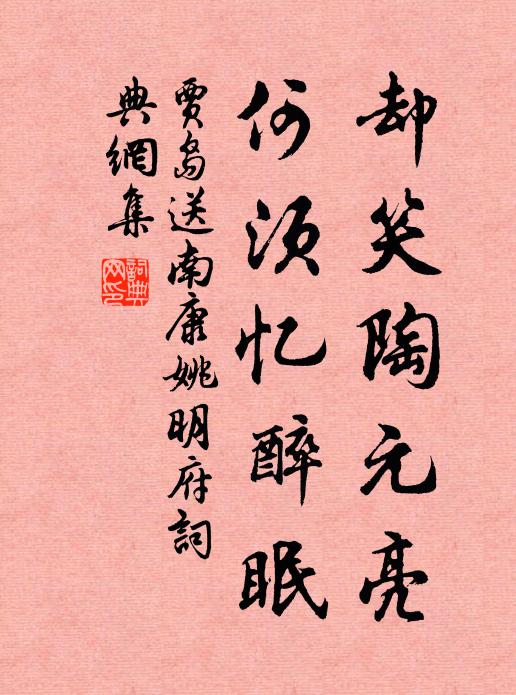 却笑陶元亮
何须忆醉眠
賈島送南康姚明府詞
典網集
詞典網印